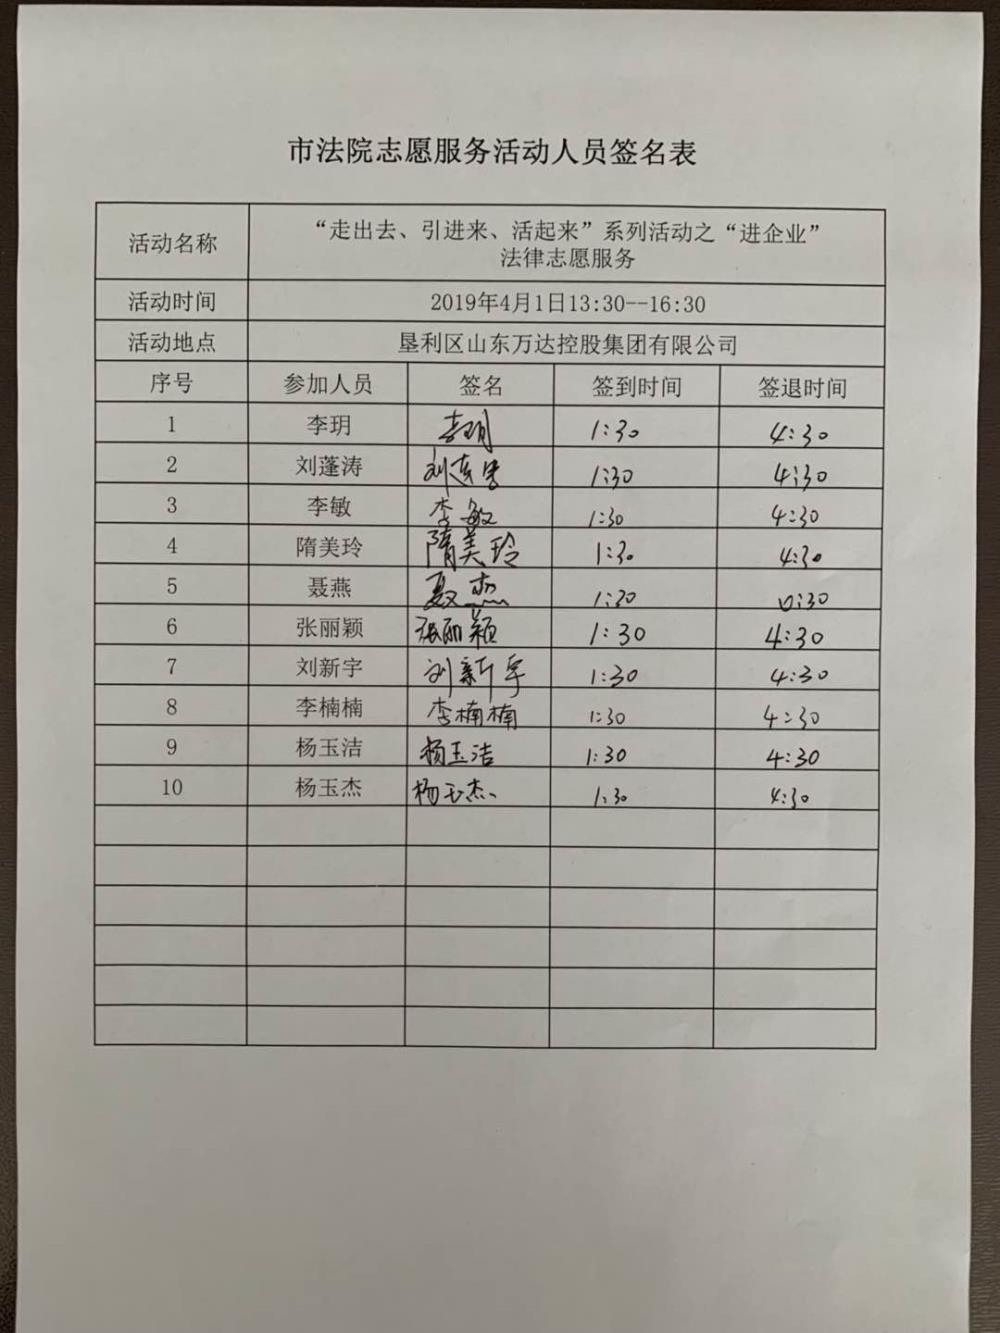 市法院志愿服务活动人员签名表
活动名称 “走出去、引进来、活起来”系列活动之“进企业”
法律志愿服务
活动时间 2019年4月1日13:30--16:30
活动地点 垦利区山东万达控股集团有限公司
序号 参加人员 签名 签到时间 签退时间
1 李玥 李玥 1:30 4:30
2 刘蓬涛 1:30 4:30
3 李敏 李敏 1:30 4:30
4 隋美玲 隋美玲 1:30 4:30
5 聂燕 1:30 :30
6 张丽颖 张丽颖 1:30 4:30
7 刘新宇 刘新宇 1:30 4:30
8 李楠楠 李楠楠 1:30 4:30
9 杨玉洁 杨玉洁 1:30 4:30
10 杨玉杰 杨玉杰 1:30 4:30